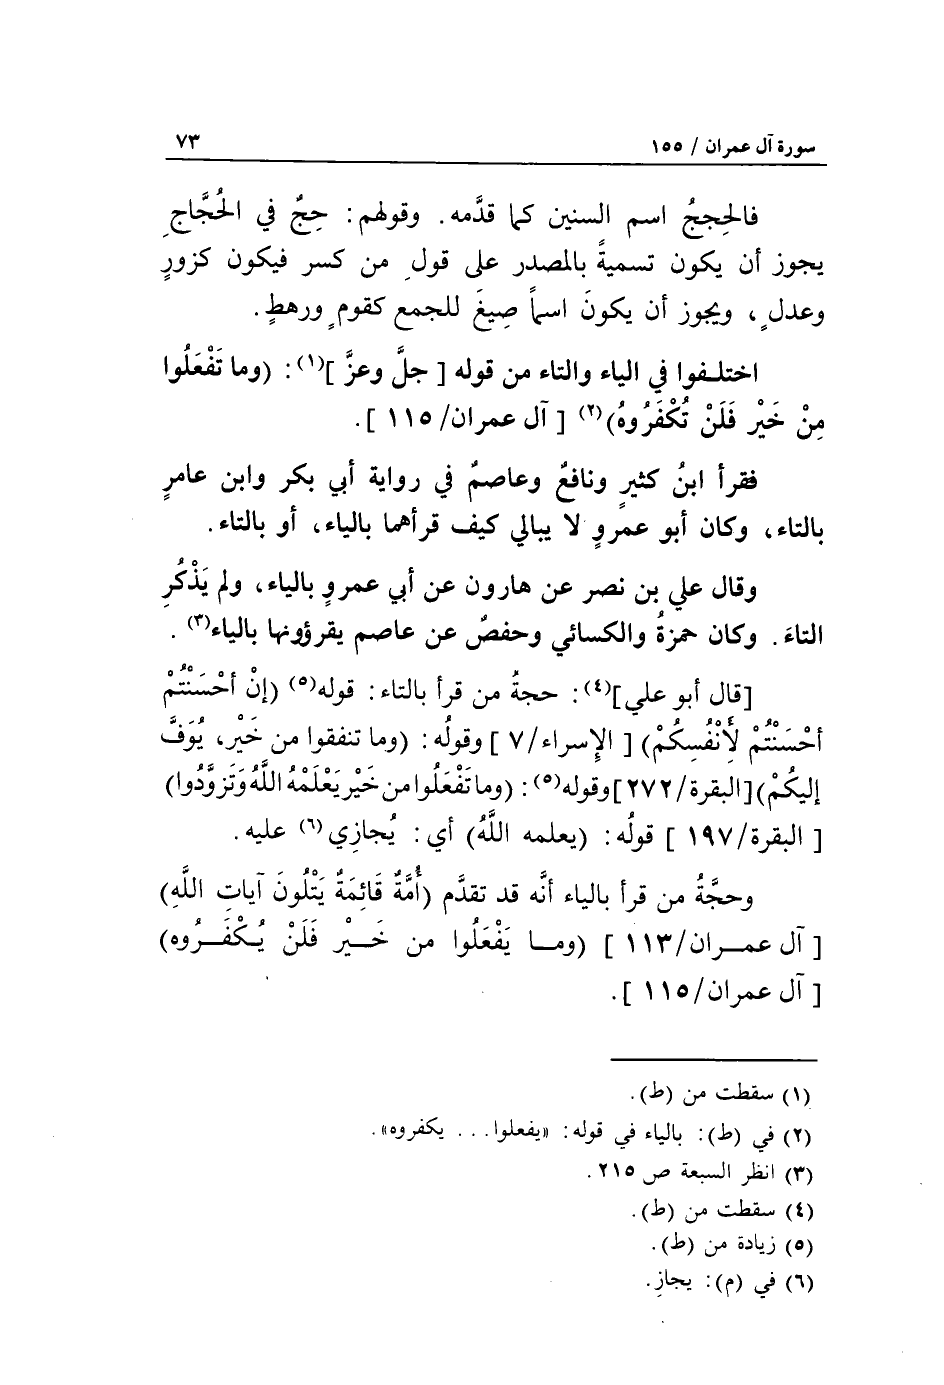 سورة آل عمران / ١٥٥ ٧٣
فالحِججُ اسم السنين كما قدَّمه. وقولهم: حِجٌ في الحُجَّاجِ
يجوز أن يكون تسميةً بالمصدر على قولِ من كسر فيكون كزورٍ
وعدلٍ، ويجوز أن يكونَ اسماً صِيغَ للجمع كقومٍ ورهطٍ.
اختلـفوا في الياء والتاء من قوله [ جلَّ وعزَّ ](١): (وما تَفْعَلُوا
مِنْ خَيْر فَلَنْ تُكْفَرُوهُ)(٢) [ آل عمران/ ١١٥ ].
فقرأ ابنُ كثيرٍ ونافعٌ وعاصمٌ في رواية أبي بكر وابن عامرٍ
بالتاء، وكان أبو عمروٍ لا يبالي كيف قرأهما بالياء، أو بالتاء.
وقال علي بن نصر عن هارون عن أبي عمروٍ بالياء، ولم يَذْكُرِ
التاءَ. وكان حمزةُ والكسائي وحفصٌ عن عاصم يقرؤونها بالياء(٣).
[قال أبو علي](٤): حجةُ من قرأ بالتاء: قوله(٥) (إنْ أحْسَنْتُمْ
أحْسَنْتُمْ لأَنْفُسِكُمْ) [ الإسراء/٧ ] وقولُه: (وما تنفقوا من خَيْرٍ، يُوَفَّ
إليكُمْ)[البقرة/٢٧٢]وقوله(٥): (وما تَفْعَلُوا من خَيْرٍ يَعْلَمْهُ اللَّهُ وَتَزَوَّدُوا)
[ البقرة/١٩٧ ] قولُه: (يعلمه اللَّهُ) أي: يُجازِي(٦) عليه.
وحجَّةُ من قرأ بالياء أنَّه قد تقدَّم (أُمَّةٌ قَائِمَةٌ يَتْلُونَ آيَاتِ اللَّهِ)
[ آل عمـران/١١٣ ] (ومـا يَفْعَلُوا من خَـيْرٍ فَلَنْ يُـكْفَـرُوه)
[ آل عمران/١١٥ ].
(١) سقطت من (ط).
(٢) في (ط): بالياء في قوله: «يفعلوا... يكفروه».
(٣) انظر السبعة ص ٢١٥.
(٤) سقطت من (ط).
(٥) زيادة من (ط).
(٦) في (م): يجازِ.